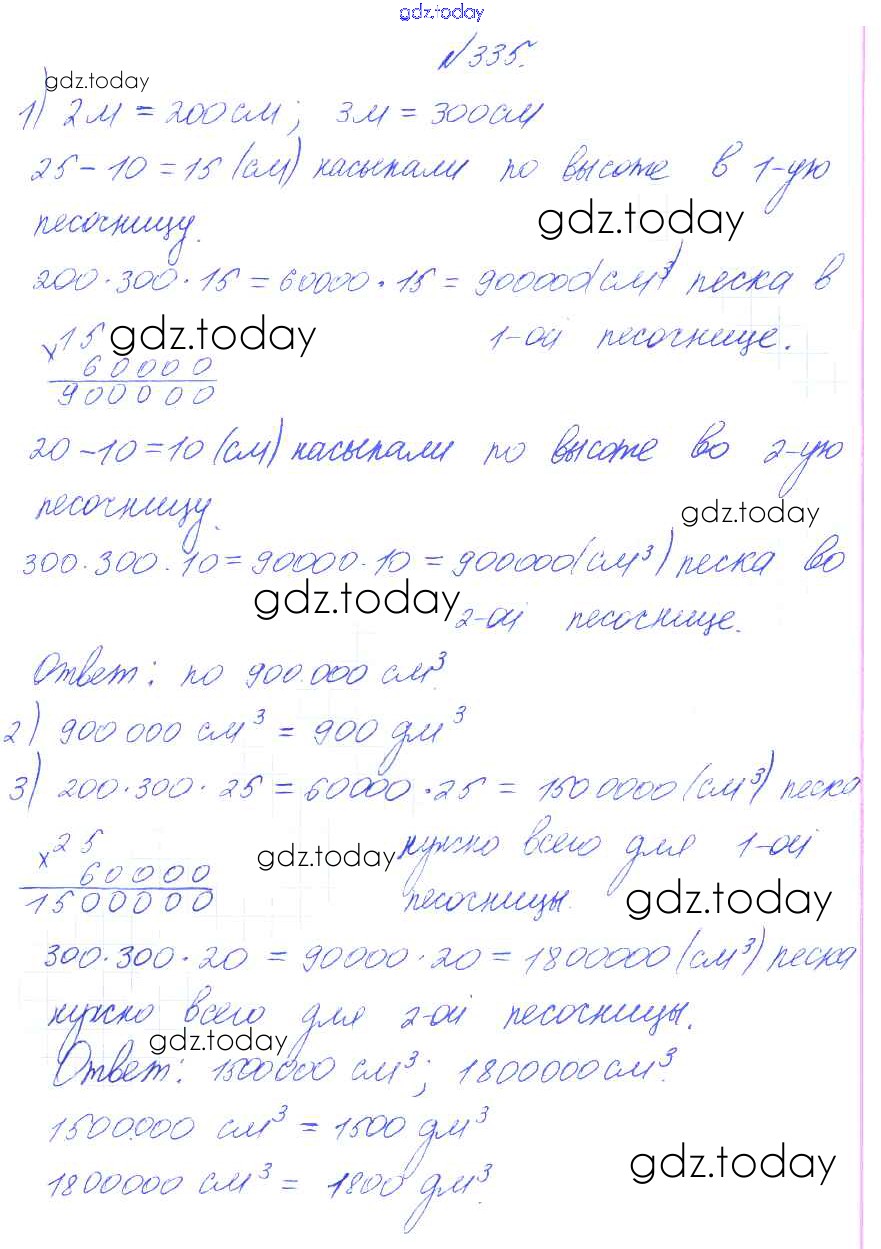 gdz.today
№335.
gdz.today
1) 2м = 200см; 3м = 300см
25-10=15 (см) насыпали по высоте в 1-ую
песочницу.
gdz.today
200·300·15=60000·15=900000(см³) песка в
1-ой песочнице.
gdz.today
×15
60000
900000
20-10=10 (см) насыпали по высоте во 2-ую
песочницу.
gdz.today
300·300·10=90000·10=900000(см³) песка во
gdz.today
2-ой песочнице.
Ответ: по 900.000 см³.
2) 900 000 см³ = 900 дм³
3) 200·300·25=60000·25=1500000(см³) песка
нужно всего для 1-ой
песочницы.
×25
60000
1500000
gdz.today
gdz.today
300·300·20=90000·20=1800000(см³) песка
нужно всего для 2-ой песочницы.
gdz.today
Ответ: 1500000 см³; 1800000см³.
1500.000 см³ = 1500 дм³
gdz.today
1800000 см³ = 1800 дм³.